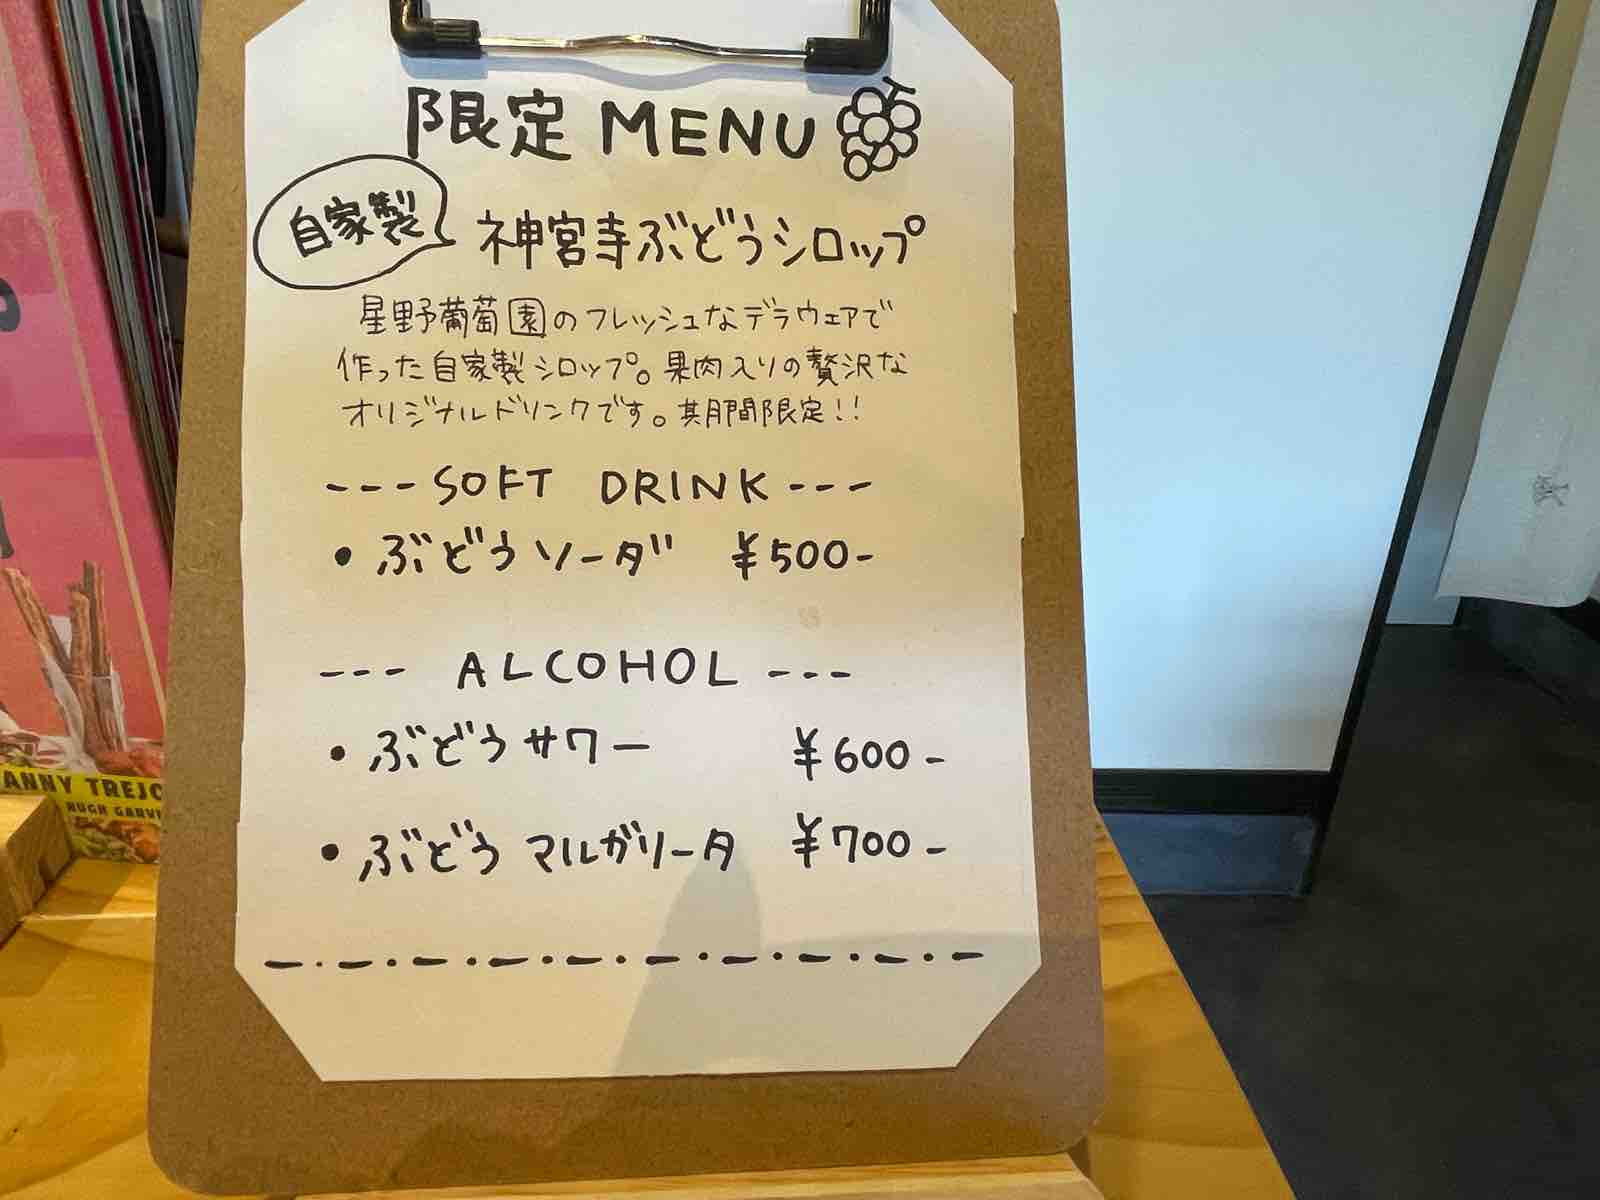 限定 MENU
自家製
神宮寺ぶどうシロップ
星野葡萄園のフレッシュなデラウェアで
作った自家製シロップ。果肉入りの贅沢な
オリジナルドリンクです。期間限定!!
---SOFT DRINK---
・ぶどうソーダ ¥500-
--- ALCOHOL ---
・ぶどうサワー ¥600-
・ぶどうマルガリータ ¥700-
ANNY TREJO
HUGH GARV